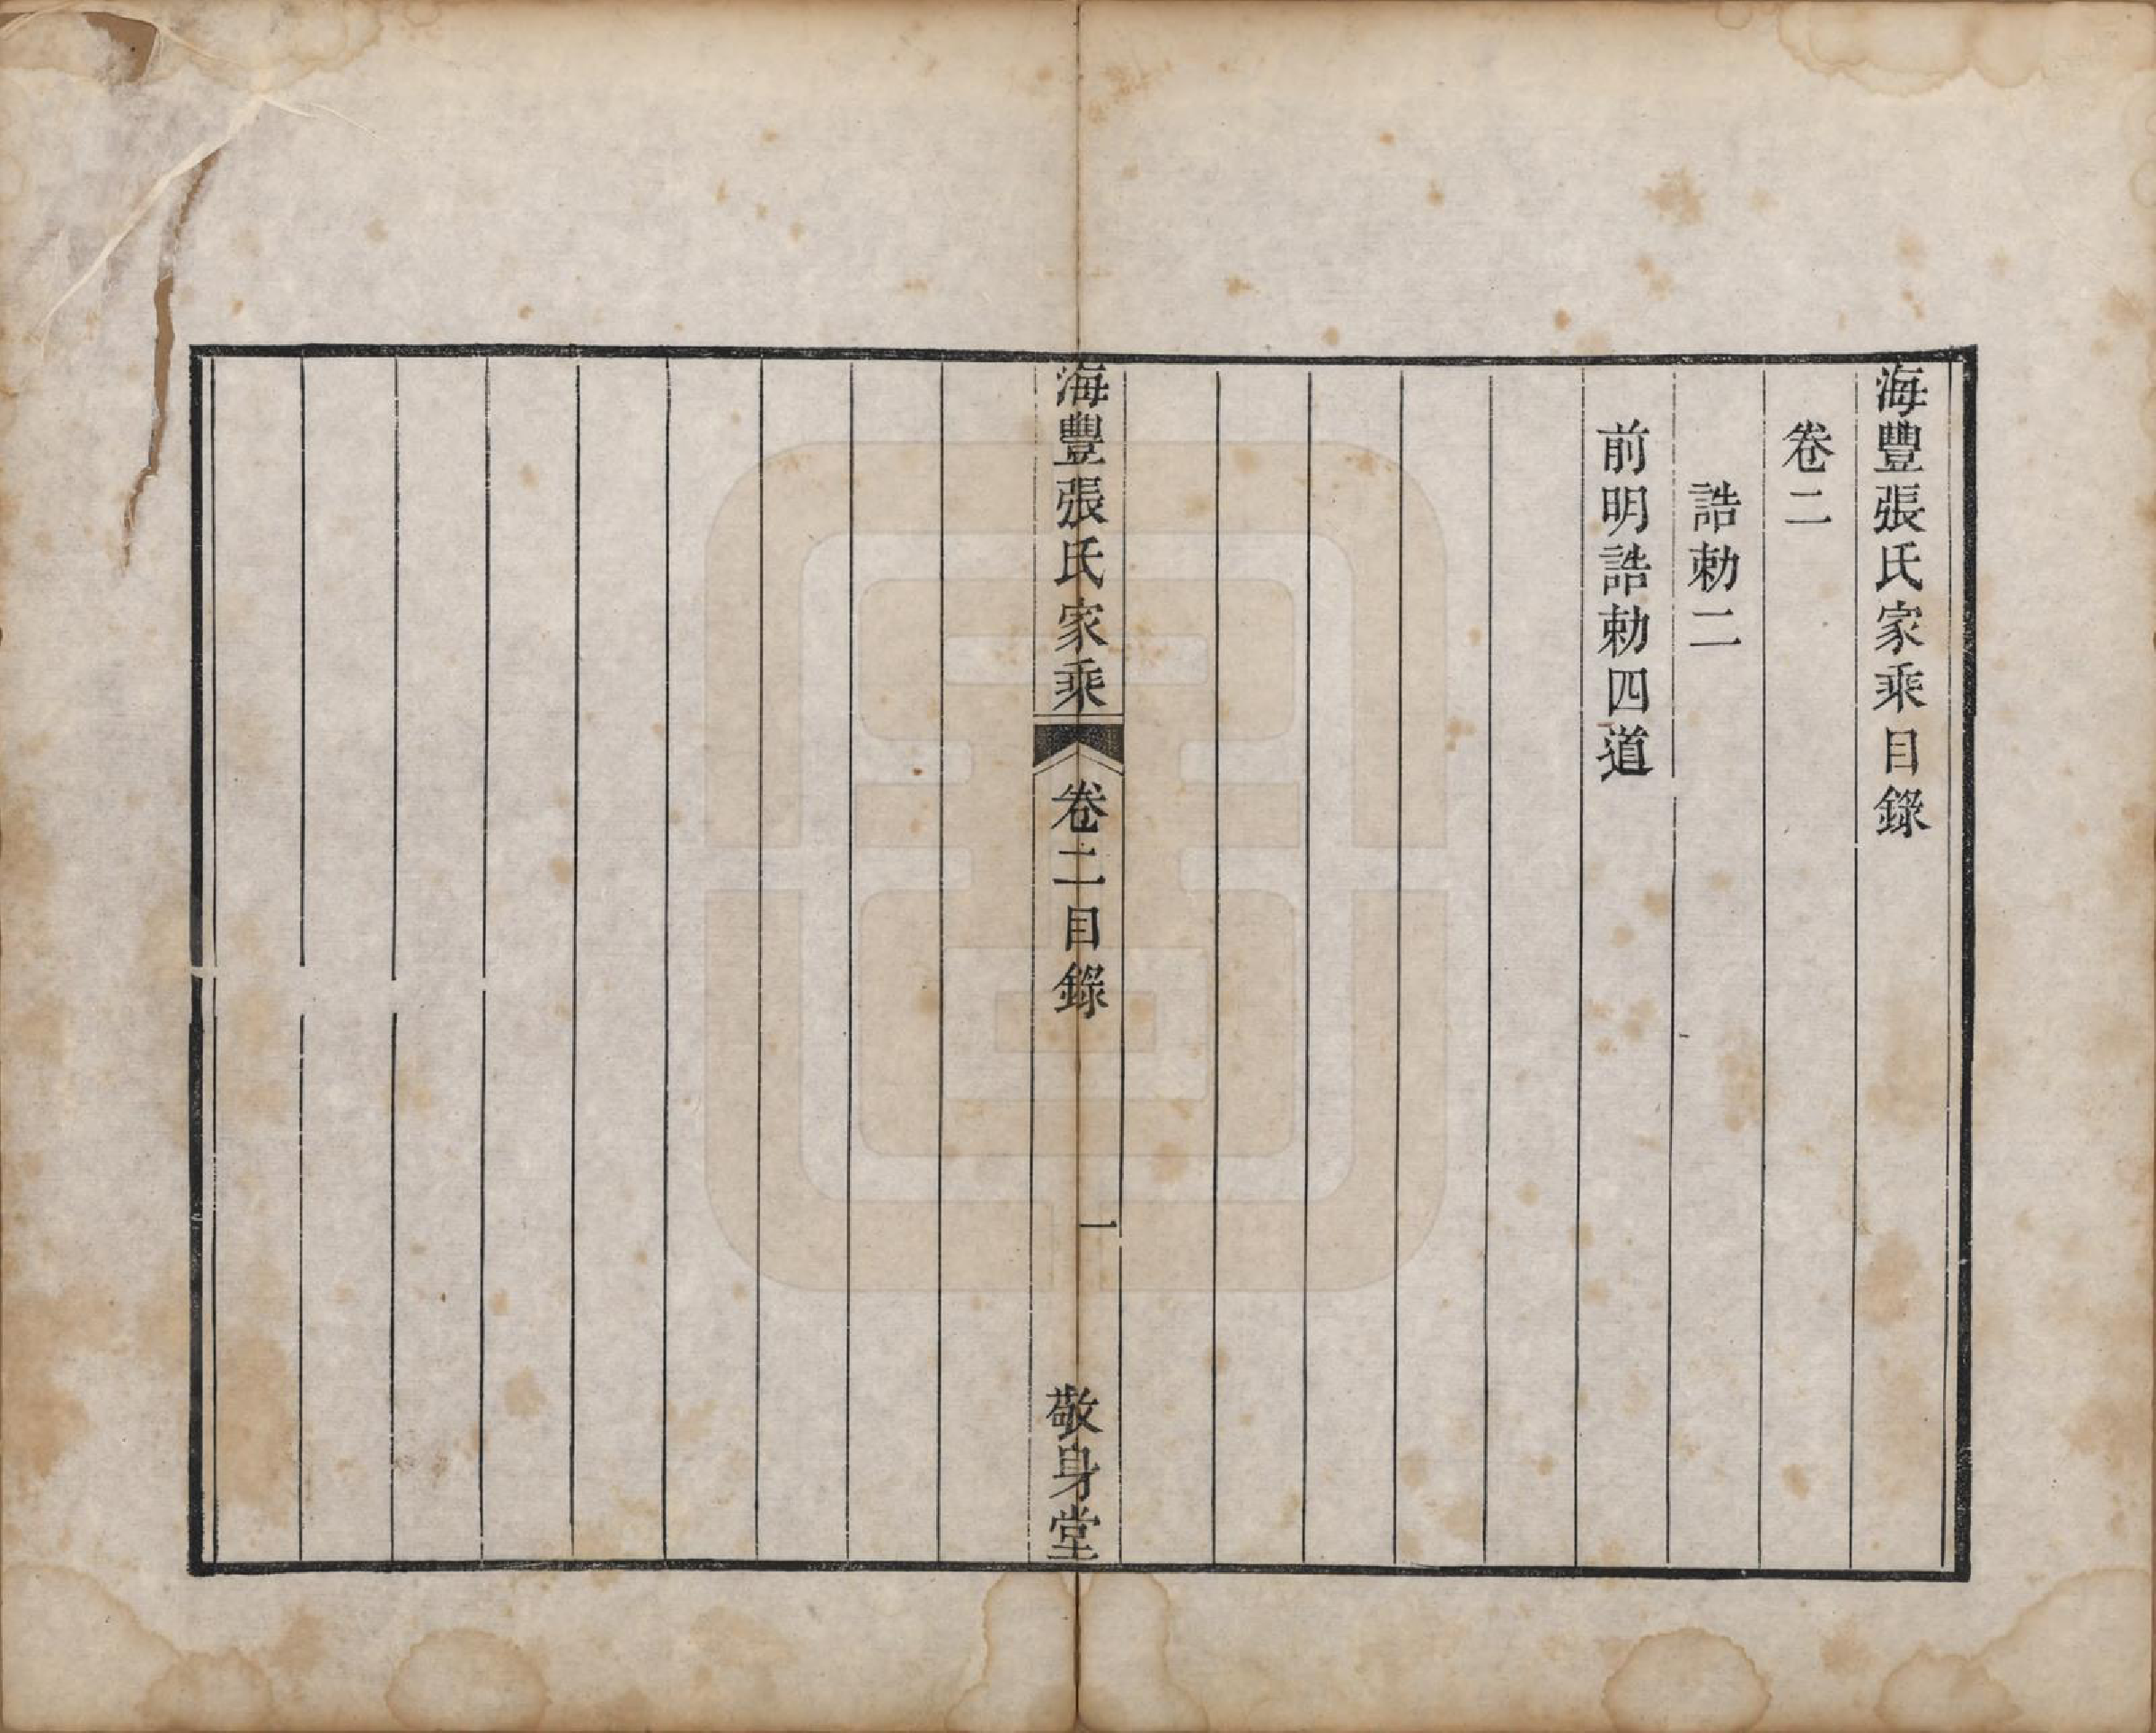 海豐張氏家乘目錄
卷二
誥勅二
前明誥勅四道
海豐張氏家乘
卷二目錄
一
敬身堂